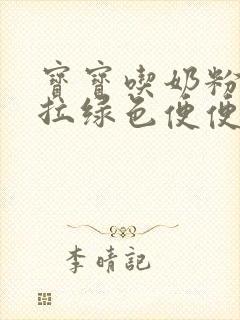 寶寶喫奶粉
拉綠色便便
李晴記